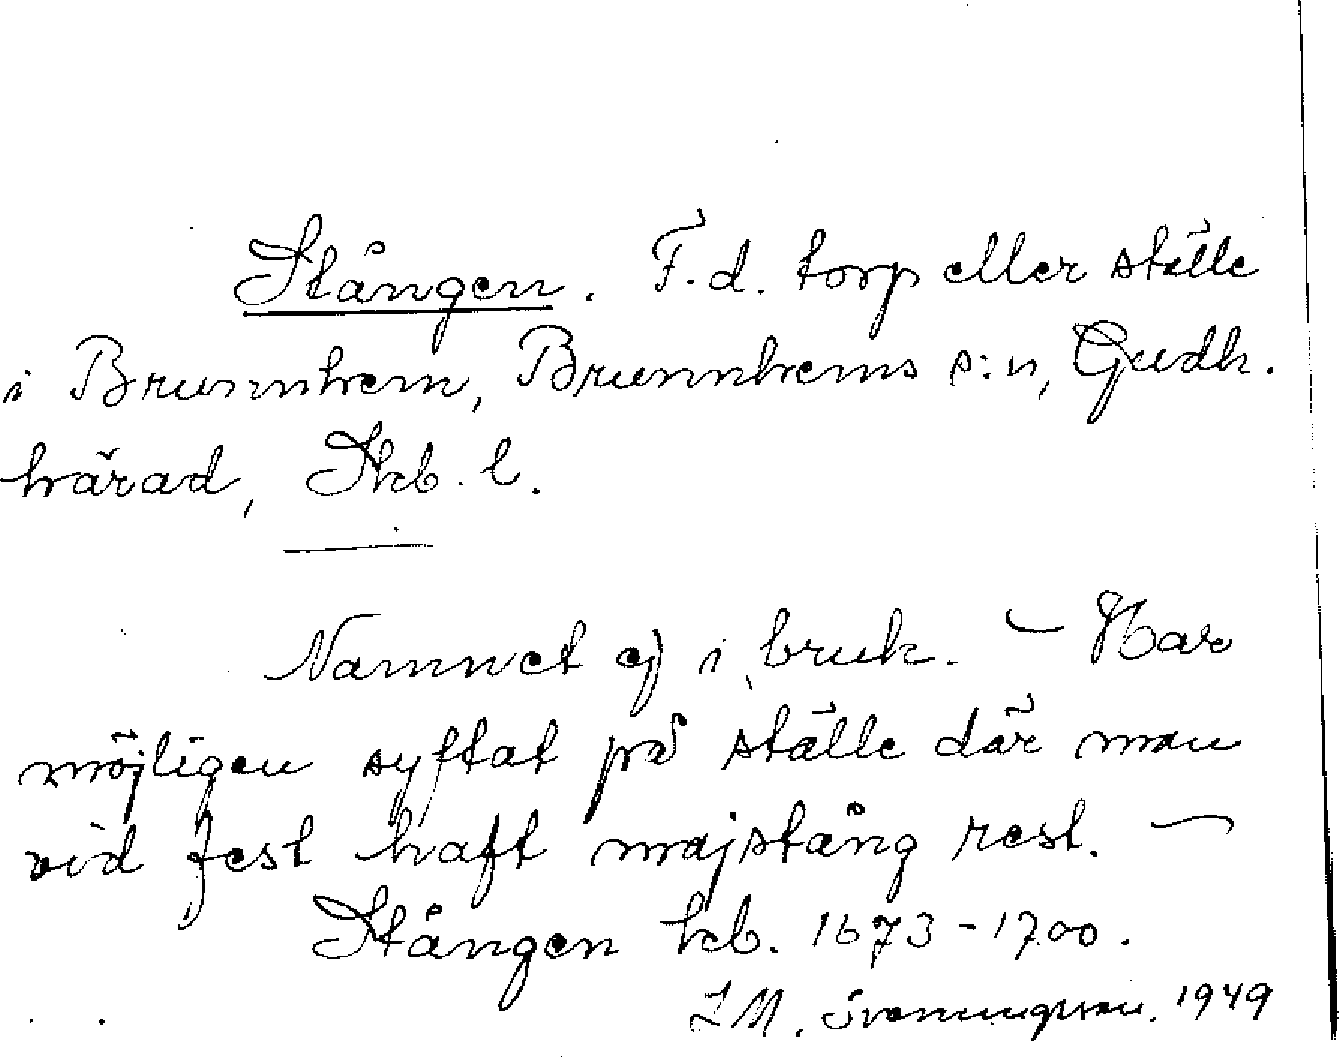 Stången. F.d. torp eller ställe
i Brunnhem, Brunnhems s:n, Gudh.
härad, Skb. l.
Namnet ej i bruk. - Har
möjligen syftat på ställe där man
vid fest haft majstång rest. -
Stången kb. 1673-1700.
I M. Svenungsson. 1949